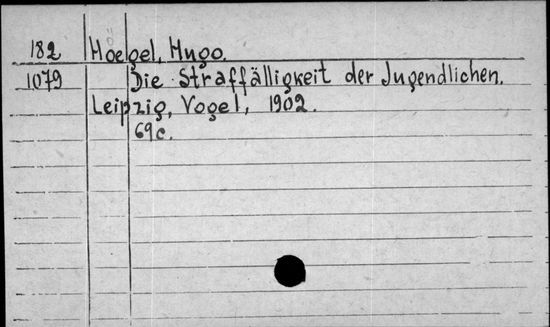 182 Hoegel, Hugo.
1079 Die Straffälligkeit der Jugendlichen.
Leipzig, Vogel, 1902.
69c.